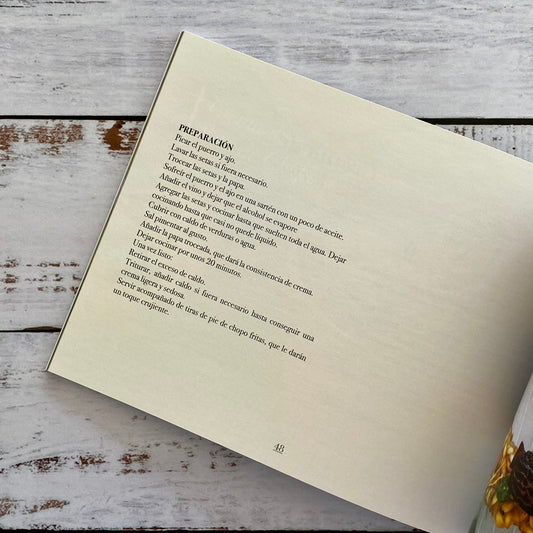 PREPARACIÓN
Picar el puerro y ajo.
Lavar las setas si fuera necesario.
Trocear las setas y la papa.
Sofreír el puerro y el ajo en una sartén con un poco de aceite.
Añadir el vino y dejar que el alcohol se evapore
Agregar las setas y cocinar hasta que suelten toda el agua. Dejar
cocinando hasta que casi no quede líquido.
Cubrir con caldo de verduras o agua.
Sal pimentar al gusto.
Añadir la papa troceada, que dará la consistencia de crema.
Dejar cocinar por unos 20 minutos.
Una vez listo:
Retirar el exceso de caldo.
Triturar, añadir caldo si fuera necesario hasta conseguir una
crema ligera y sedosa.
Servir acompañado de tiras de pie de chopo fritas, que le darán
un toque crujiente.
48